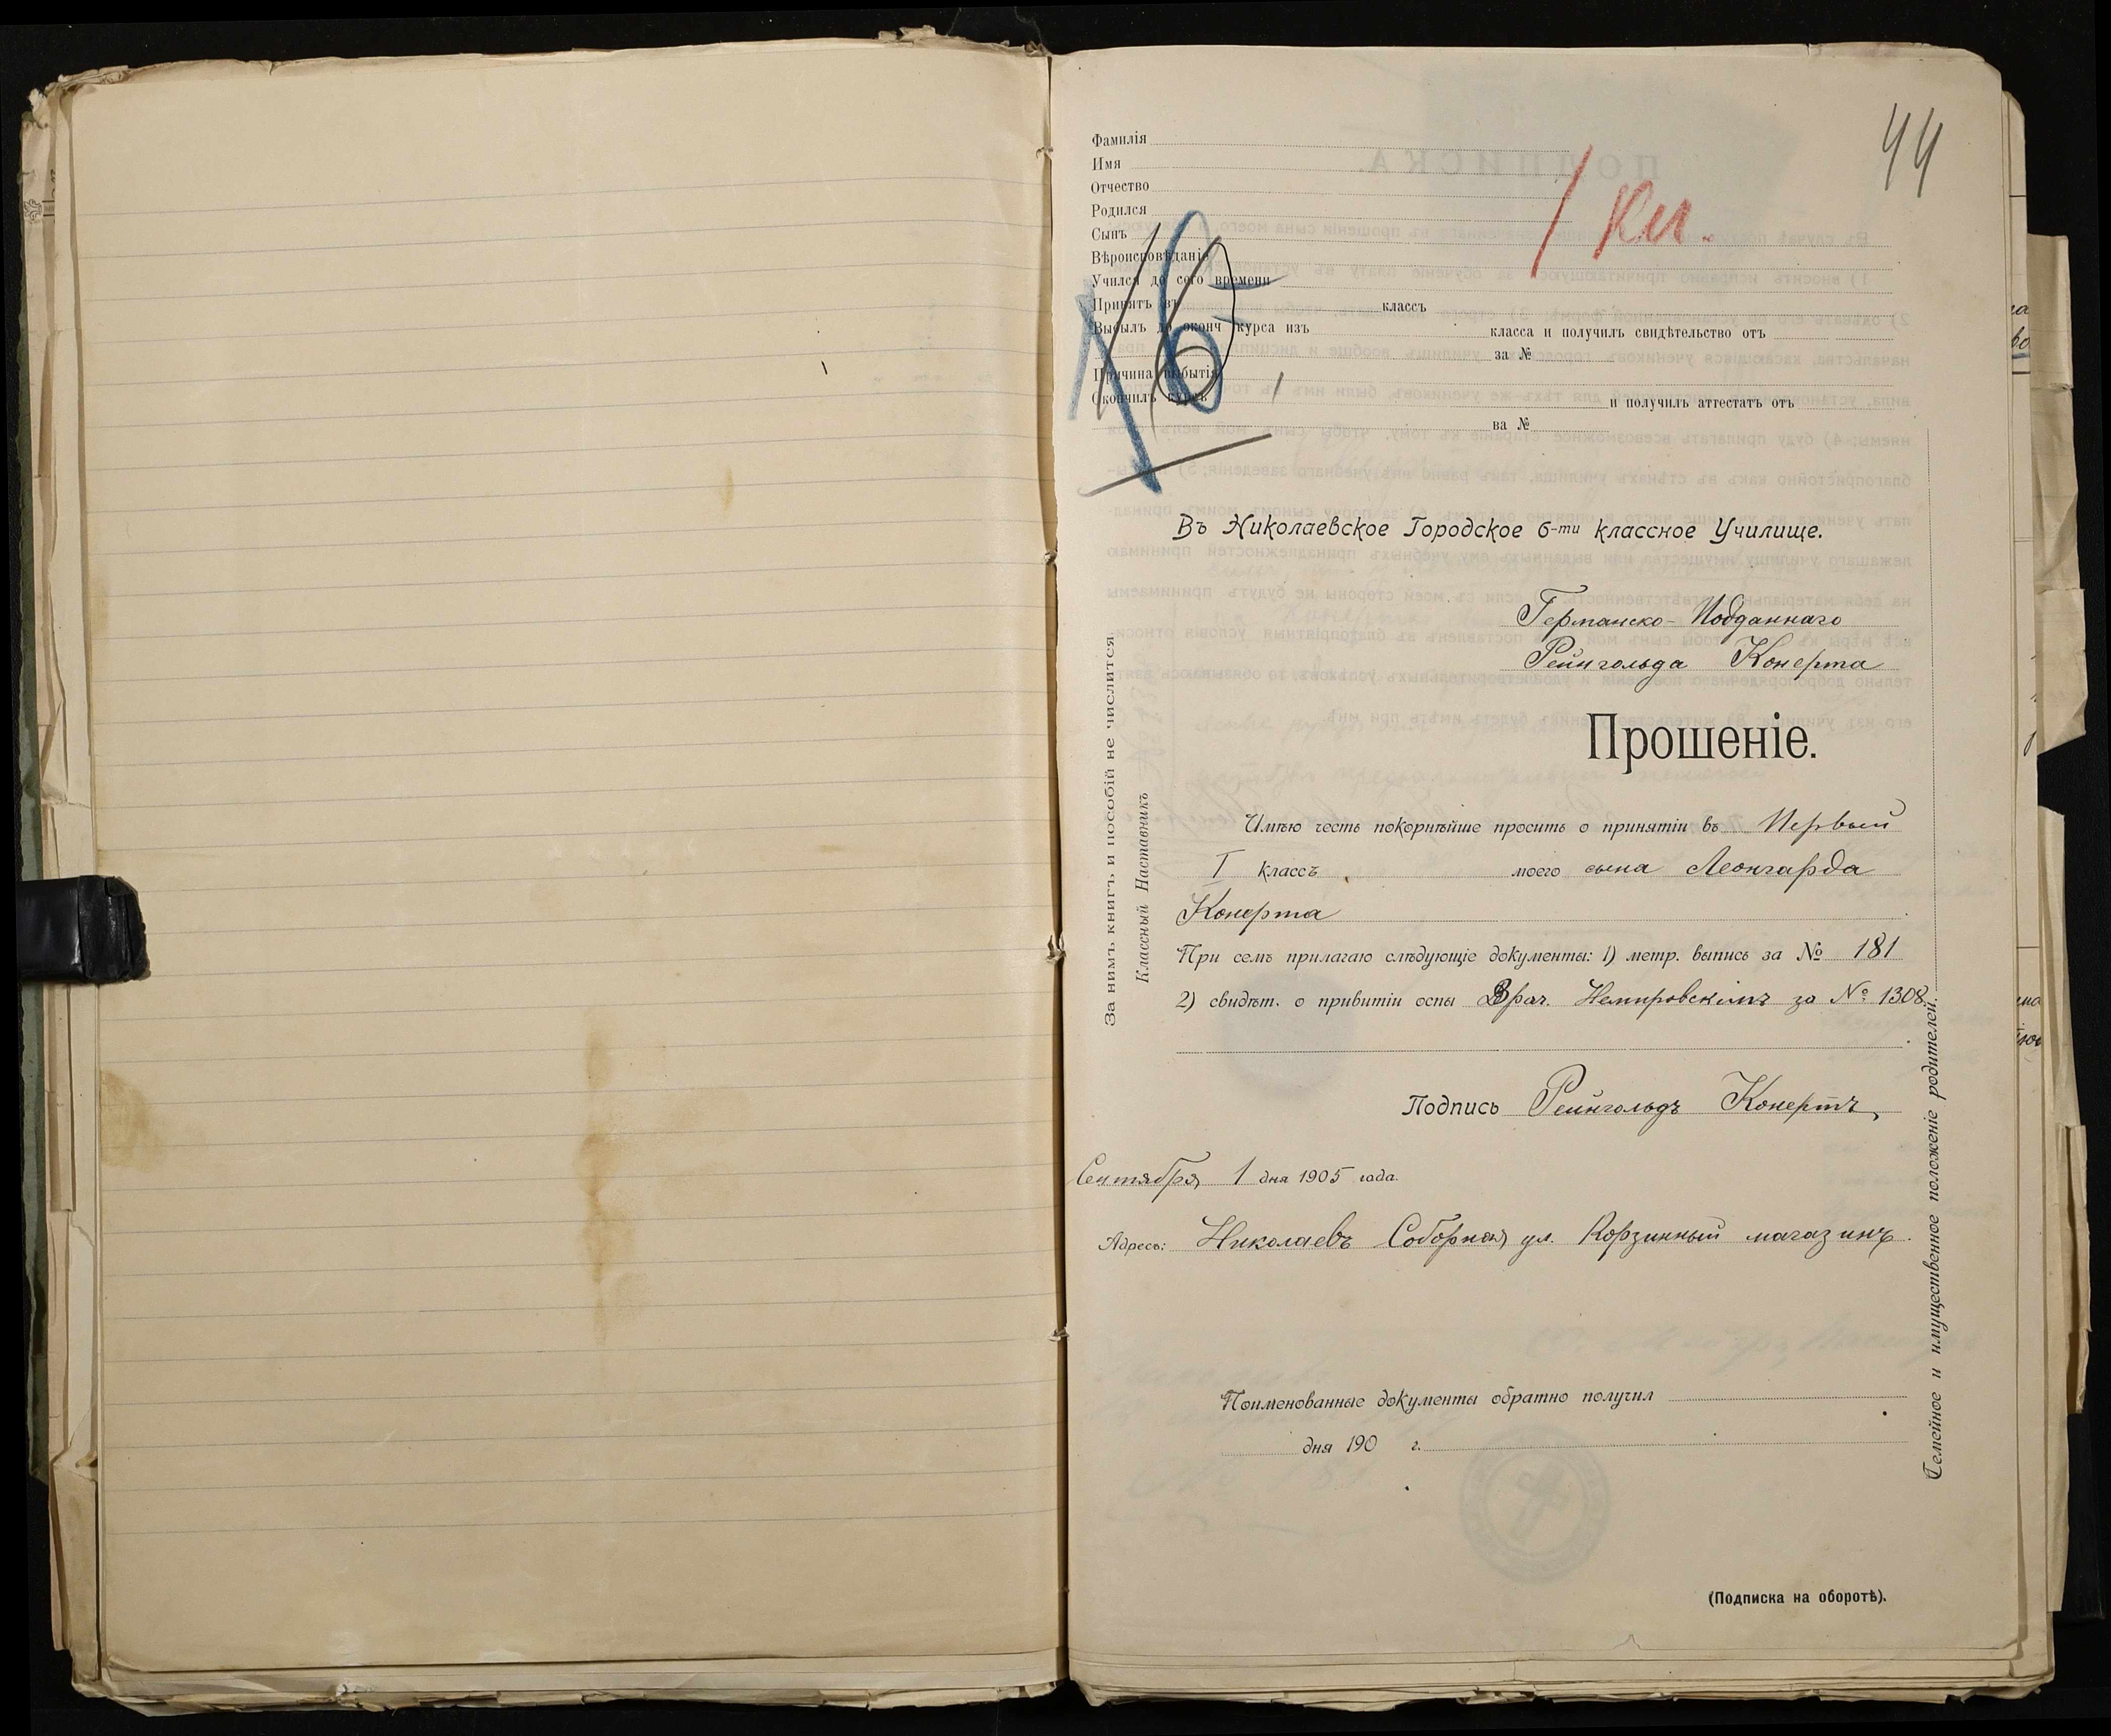 44
1 кл.
Фамилія
Имя
Отчество
Родился
Сынъ
Вѣроисповѣданіе
Учился до сего времени
Принятъ въ классъ
Выбылъ до оконч курса изъ класса и получилъ свидѣтельство отъ
за №
Причина выбытія
Окончилъ курсъ и получилъ аттестатъ отъ
за №
16
Въ Николаевское Городское 6-ти классное Училище.
Германско-Подданнаго
Рейнгольда Конерта
Прошеніе.
Имѣю честь покорнѣйше просить о принятіи въ Первый
I классъ моего сына Леонгарда
Конерта
При семъ прилагаю слѣдующіе документы: 1) метр. выпись за № 181
2) свидѣт. о привитіи оспы Врач. Немировскимъ за № 1308.
Подпись Рейнгольдъ Конертъ
Сентября 1 дня 1905 года.
Адресъ: Николаевъ Соборная ул. Корзинный магазинъ.
Поименованные документы обратно получил
дня 190 г.
(Подписка на оборотѣ).
За нимъ книгъ и пособій не числится.
Классный Наставникъ
Семейное и имущественное положеніе родителей.